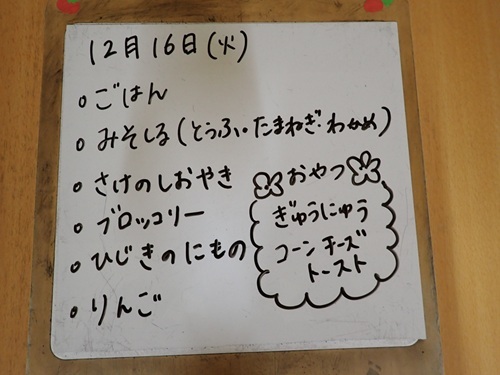 12月16日(火)
○ごはん
○みそしる(とうふ・たまねぎ・わかめ)
○さけのしおやき
○ブロッコリー
○ひじきのにもの
○りんご
おやつ
ぎゅうにゅう
コーンチーズ
トースト